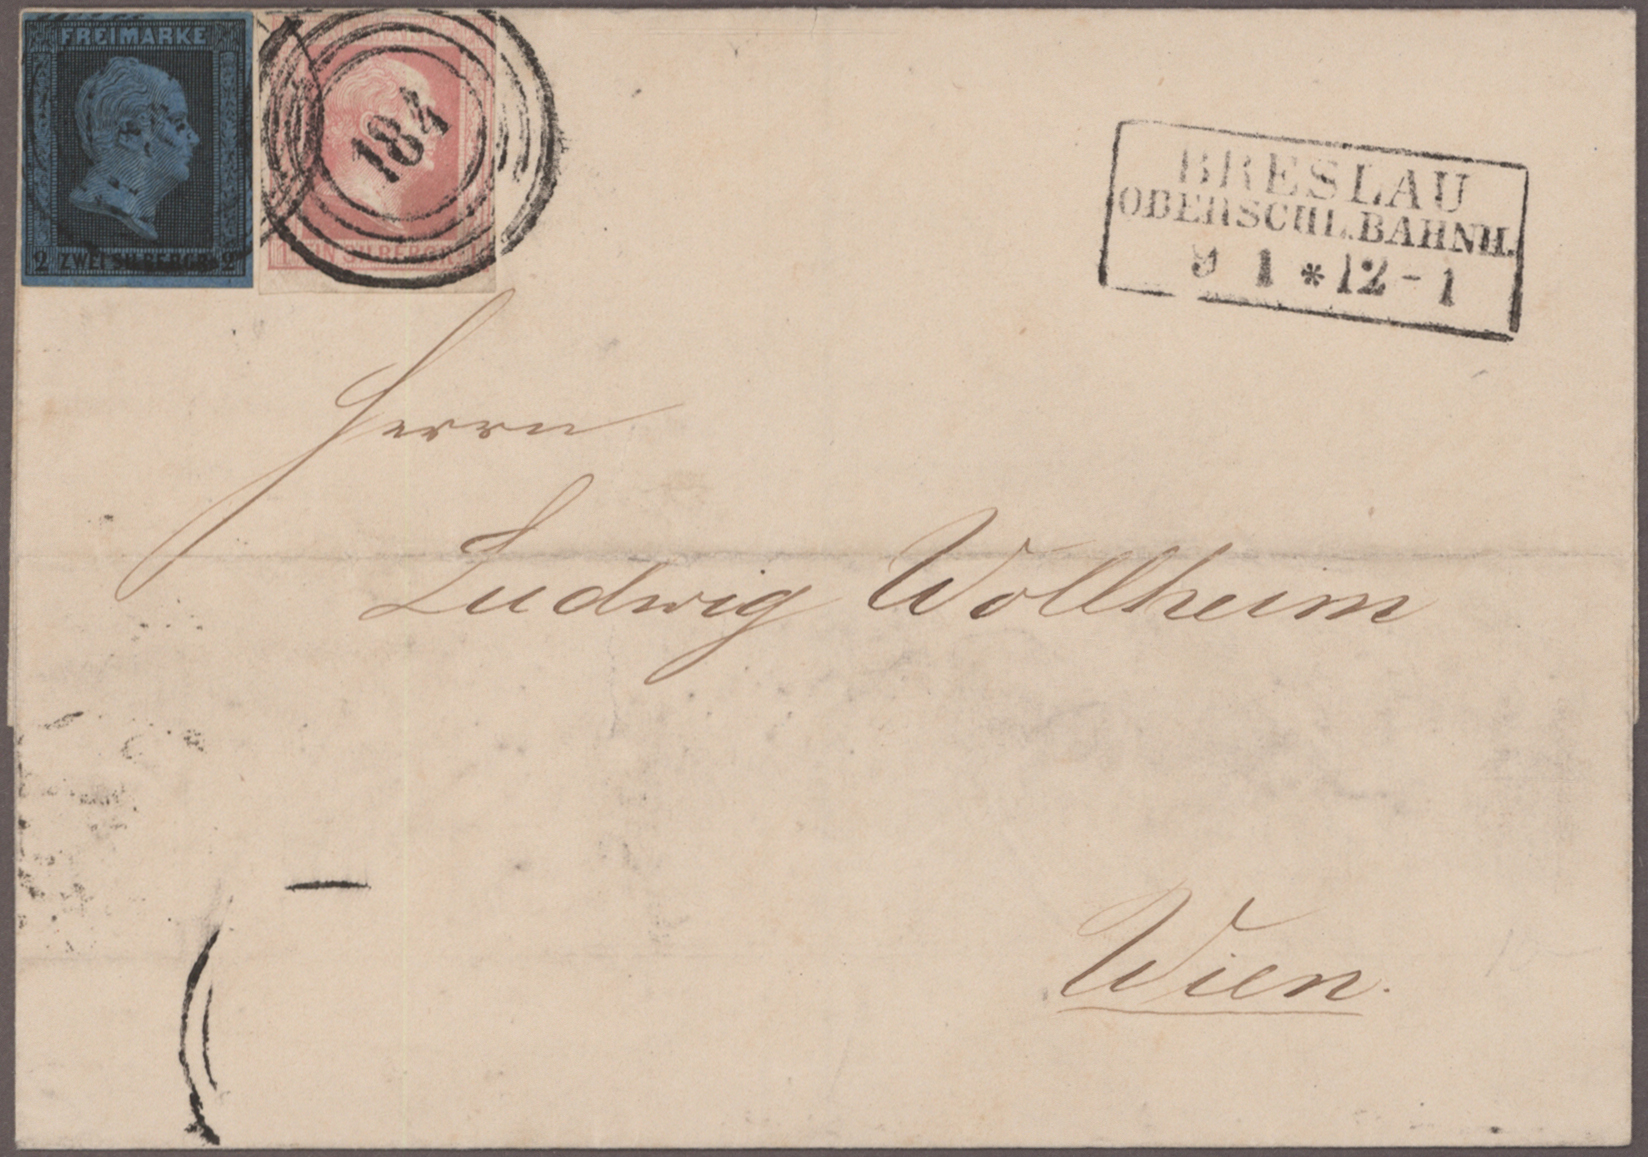 FREIMARKE
2 ZWEI SILBERGR. 2
184
BRESLAU
OBERSCHL.BAHNH.
9 1 * 12 - 1
Herrn
Ludwig Wollheim
Wien.